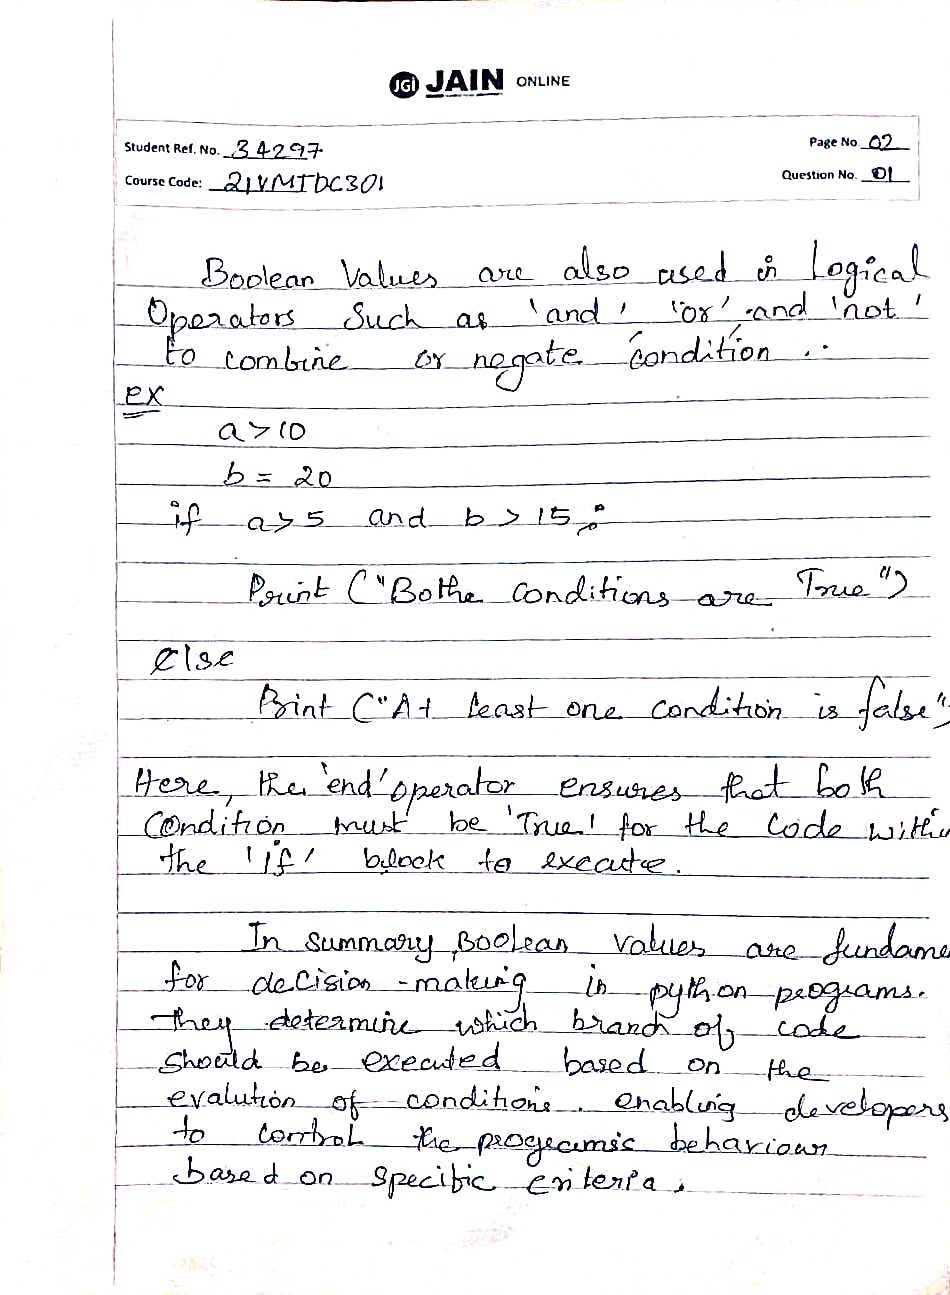 JGI JAIN ONLINE
Student Ref. No. 34297
Page No. 02
Course Code: 21VMTDC301
Question No. 01
Boolean Values are also used in Logical
Operators Such as 'and' 'or' and 'not'
to combine or negate condition ..
ex
a>10
b = 20
if a>5 and b > 15 :
Print ("Bothe Conditions are True")
Else
Print ("At least one condition is false")
Here, the 'end' operator ensures that both
Condition must be 'True' for the Code within
the 'if' block to execute.
In summary, Boolean values are fundame
for decision-making in python programs.
They determine which branch of code
should be executed based on the
evalution of conditions. enabling developers
to control the programs behaviour
based on specific criteria.